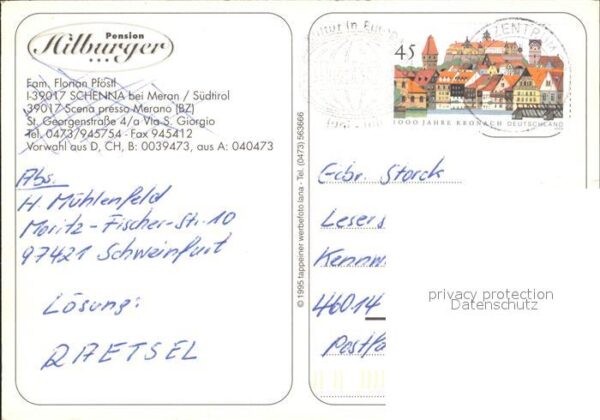 Pension
Hilburger
Fam. Florian Pföstl
I-39017 SCHENNA bei Meran / Südtirol
39017 Scena presso Merano (BZ)
St. Georgenstraße 4/a Via S. Giorgio
Tel. 0473/945754 - Fax 945412
Vorwahl aus D, CH, B: 0039473, aus A: 040473
Abs.
H. Mühlenfeld
Moritz-Fischer-Str. 10
97421 Schweinfurt
Lösung:
RAETSEL
© 1995 tappeiner werbefoto lana - Tel. (0473) 563666
45
1000 JAHRE KRONACH DEUTSCHLAND
ZENTRUM
Gebr. Storck
Lesers
Kennw
46014
Postfa
privacy protection
Datenschutz